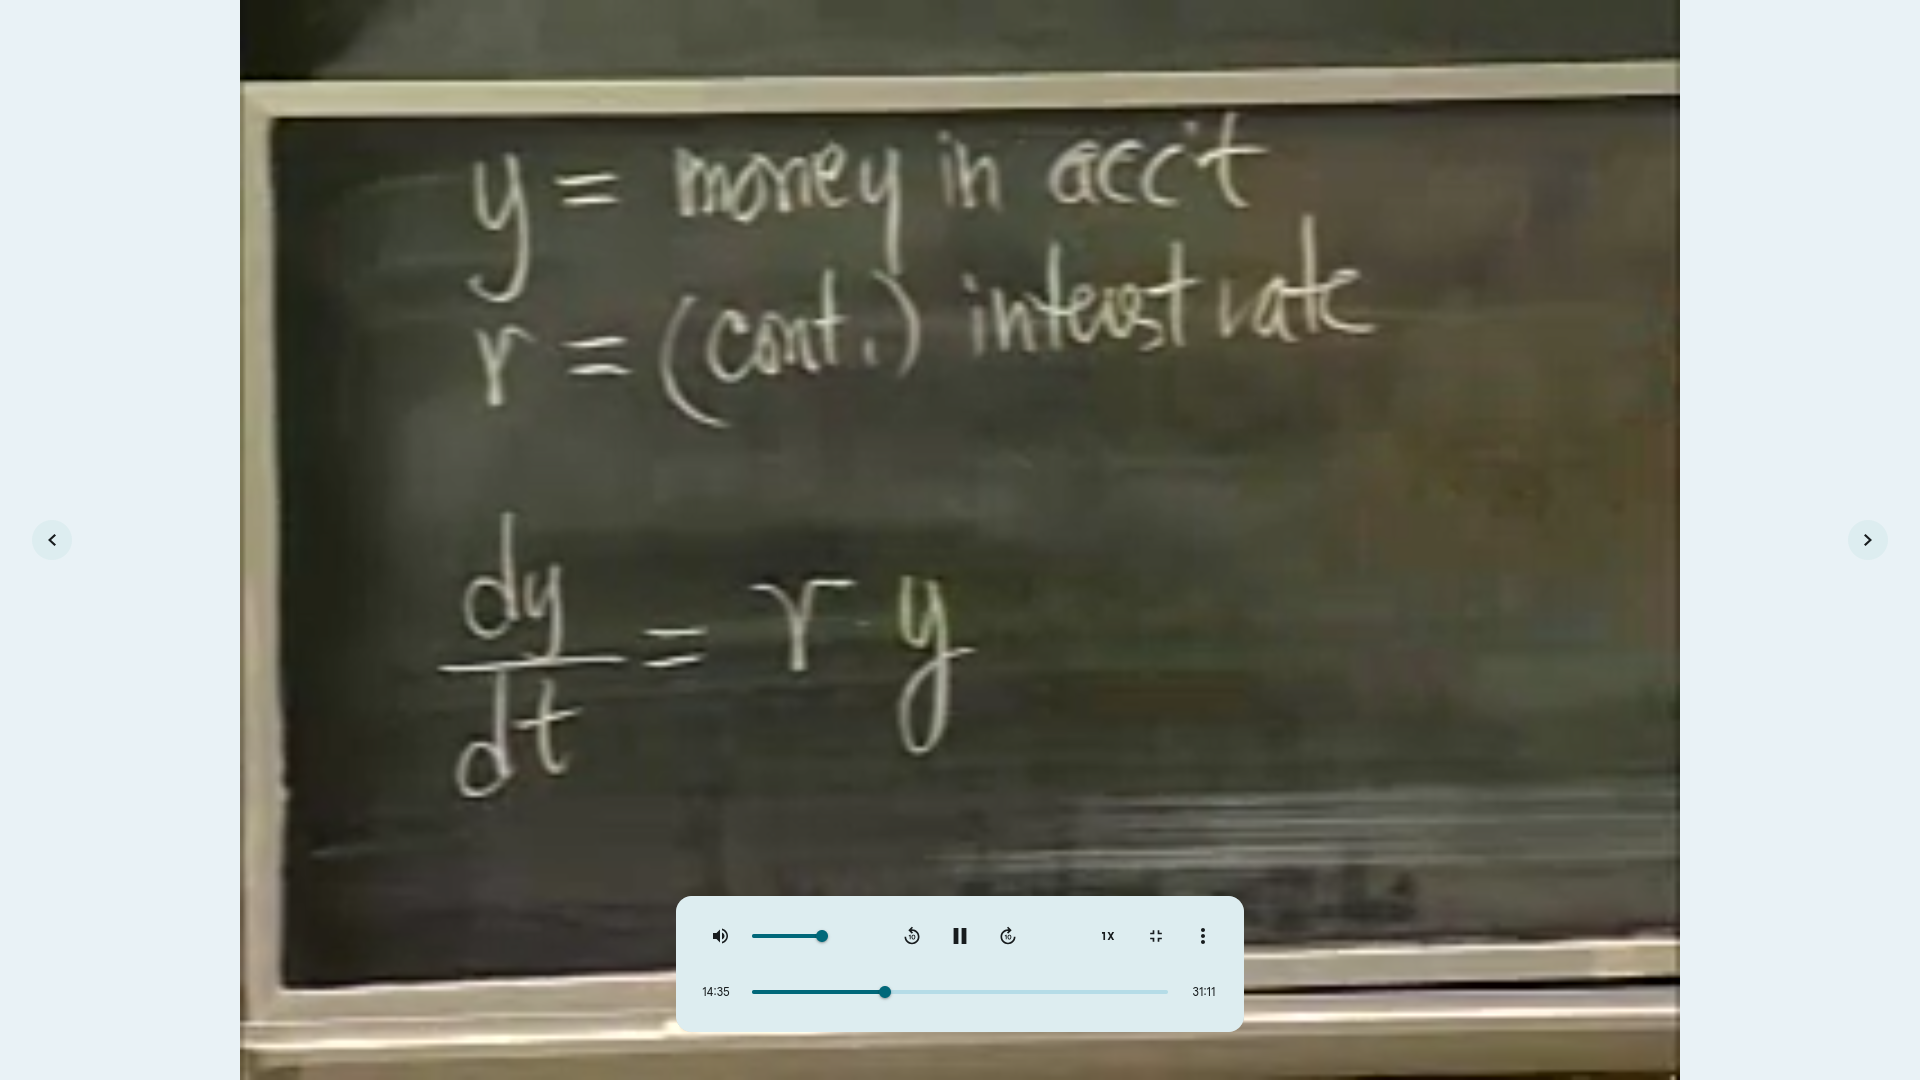 y = money in acc't
r = (cont.) interest rate
dy/dt = r y
1X
14:35
31:11